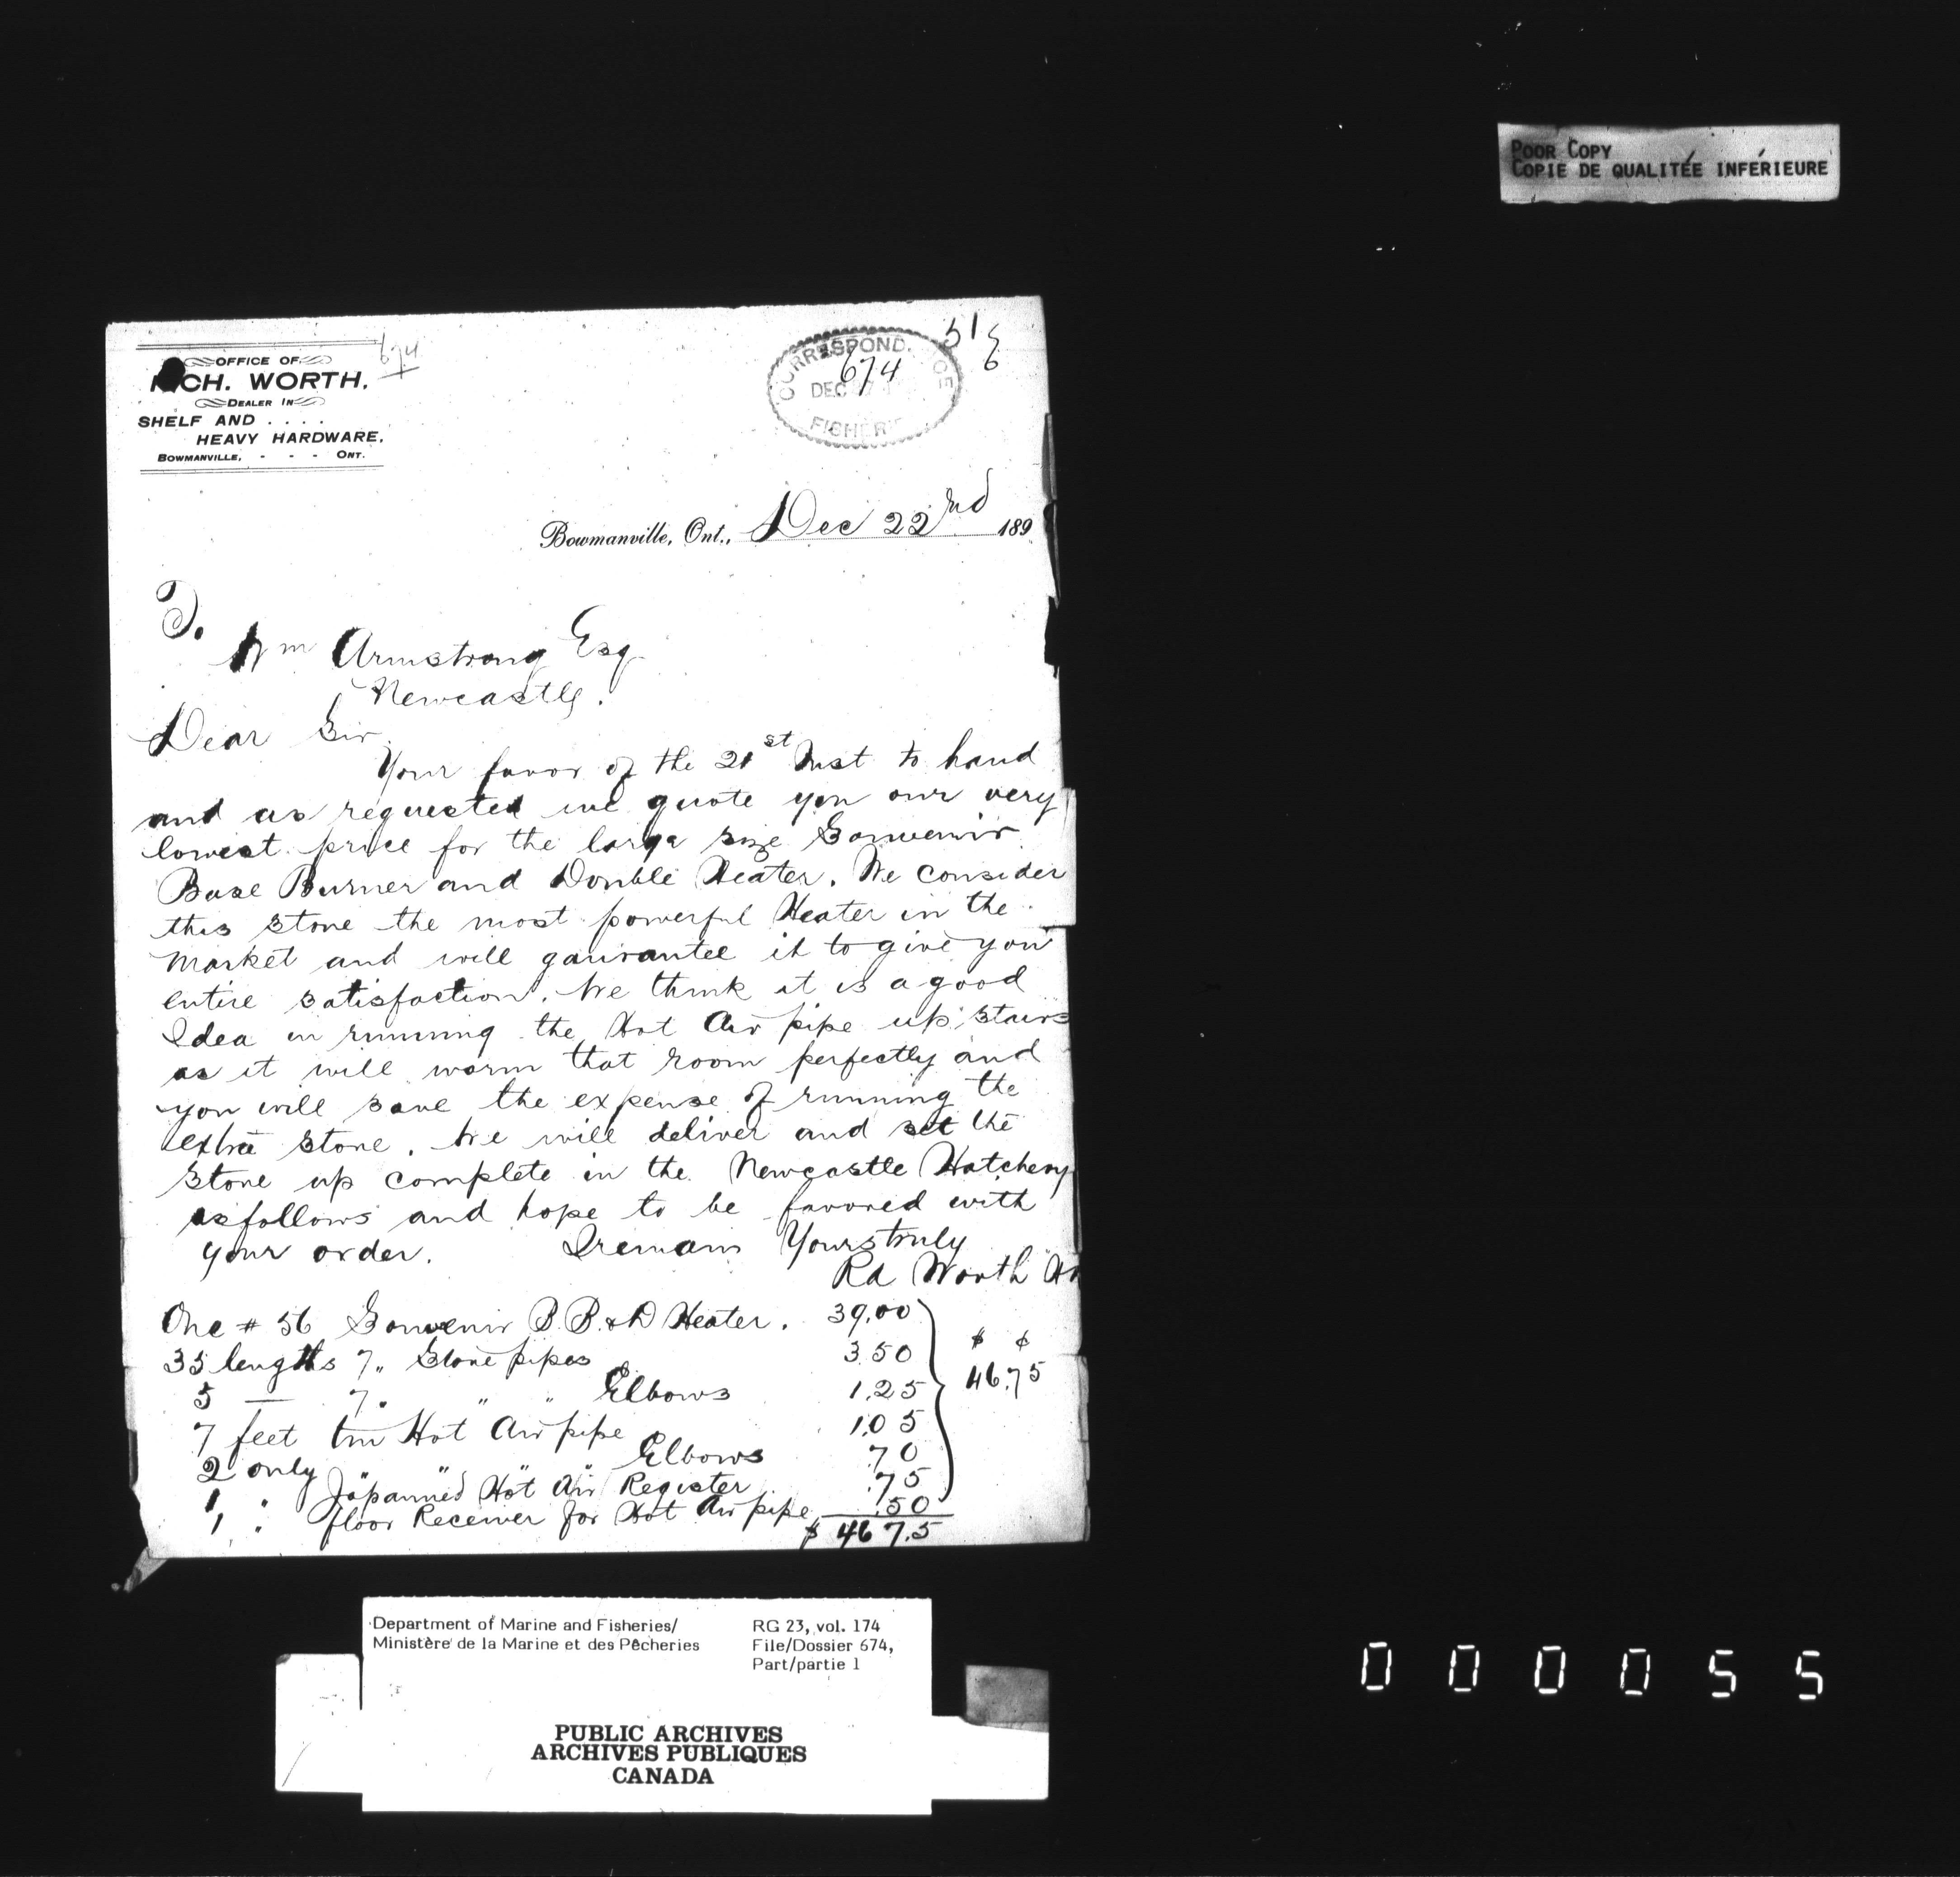 POOR COPY
COPIE DE QUALITÉE INFÉRIEURE
674
OFFICE OF
RICH. WORTH,
DEALER IN
SHELF AND . . . .
HEAVY HARDWARE,
BOWMANVILLE, - - - ONT.
CORRESPONDENCE
674
DEC
FISHERIES
Bowmanville, Ont., Dec 22nd 189
To.
Wm Armstrong Esq
Newcastle.
Dear Sir
Your favor of the 21st Inst to hand
and as requested we quote you our very
lowest price for the large size Souvenir
Base Burner and Double Heater. We consider
this stove the most powerful Heater in the
market and will gaurantee it to give you
entire satisfaction. We think it is a good
Idea in running the Hot Air pipe up stairs
as it will warm that room perfectly and
you will save the expense of running the
extra stove. We will deliver and set the
stove up complete in the Newcastle Hatchery
as follows and hope to be favored with
your order. I remain Yours truly
Rd Worth
One # 56 Souvenir B. B. & D Heater. 39.00
35 lengths 7" Stove pipes 3.50
5 — 7" " " Elbows 1.25
7 feet tin Hot Air pipe 1.05
2 only " " " Elbows 70
1, " Japanned Hot Air Register .75
1, " floor Receiver for Hot Air pipe .50
$ 46 7.5
$ ¢
46.75
Department of Marine and Fisheries/
Ministère de la Marine et des Pêcheries
RG 23, vol. 174
File/Dossier 674,
Part/partie 1
PUBLIC ARCHIVES
ARCHIVES PUBLIQUES
CANADA
000055